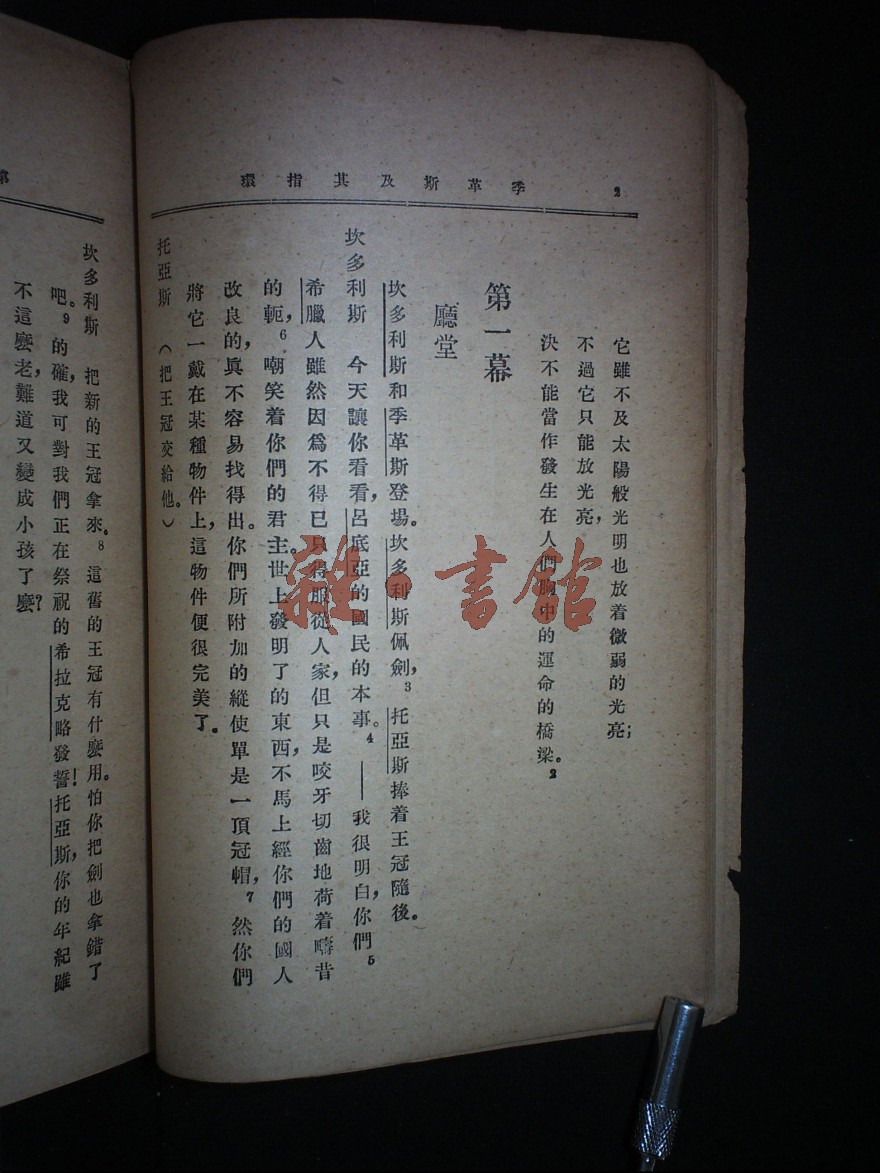 2 季革斯及其指環
它雖不及太陽般光明也放着微弱的光亮；
不過它只能放光亮，
決不能當作發生在人們胸中的運命的橋梁。2
第一幕
廳堂
坎多利斯和季革斯登場。坎多利斯佩劍，3 托亞斯捧着王冠隨後。
坎多利斯 今天讓你看看，呂底亞的國民的本事。4 ——我很明白，你們5
希臘人雖然因爲不得已只得服從人家，但只是咬牙切齒地荷着疇昔
的軛，6 嘲笑着你們的君主。世上發明了的東西，不馬上經你們的國人
改良的，眞不容易找得出。你們所附加的縱使單是一頂冠帽，7 然你們
將它一戴在某種物件上，這物件便很完美了。
托亞斯 （把王冠交給他。）
第
坎多利斯 把新的王冠拿來。8 這舊的王冠有什麽用。怕你把劍也拿錯了
吧。9 的確，我可對我們正在祭祝的希拉克略發誓！托亞斯，你的年紀雖
不這麽老，難道又變成小孩了麽？
雜·書館